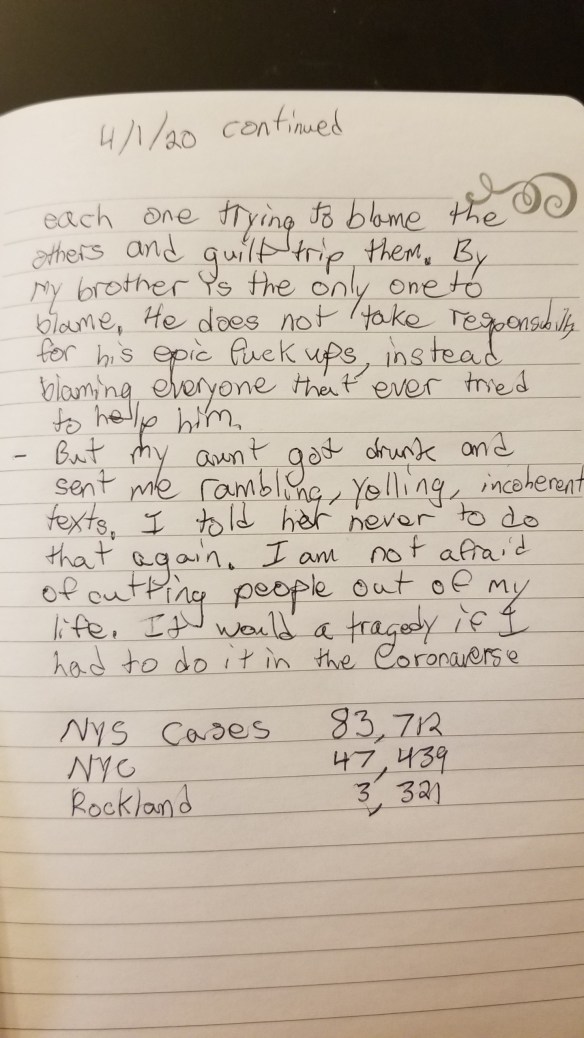 4/1/20 continued
each one trying to blame the
others and guilt trip them. By
my brother is the only one to
blame. He does not take responsibility
for his epic fuck ups, instead
blaming everyone that ever tried
to help him.
- But my aunt got drunk and
sent me rambling, yelling, incoherent
texts. I told her never to do
that again. I am not afraid
of cutting people out of my
life. It would a tragedy if I
had to do it in the Coronaverse
NYS Cases 83,712
NYC 47,439
Rockland 3,321